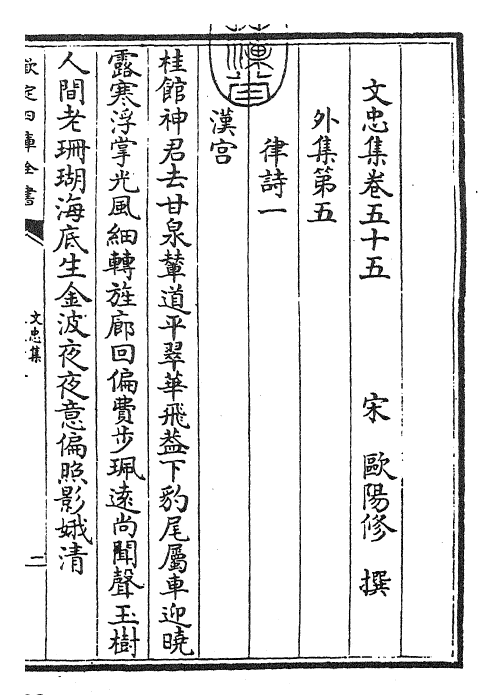 文忠集卷五十五
宋　歐陽修　撰
外集第五
律詩一
漢宮
桂館神君去甘泉輦道平翠華飛葢下豹尾屬車迎曉
露寒浮掌光風細轉旌廊回偏費步珮遠尚聞聲玉樹
人間老珊瑚海底生金波夜夜意偏照影娥清
欽定四庫全書
文忠集